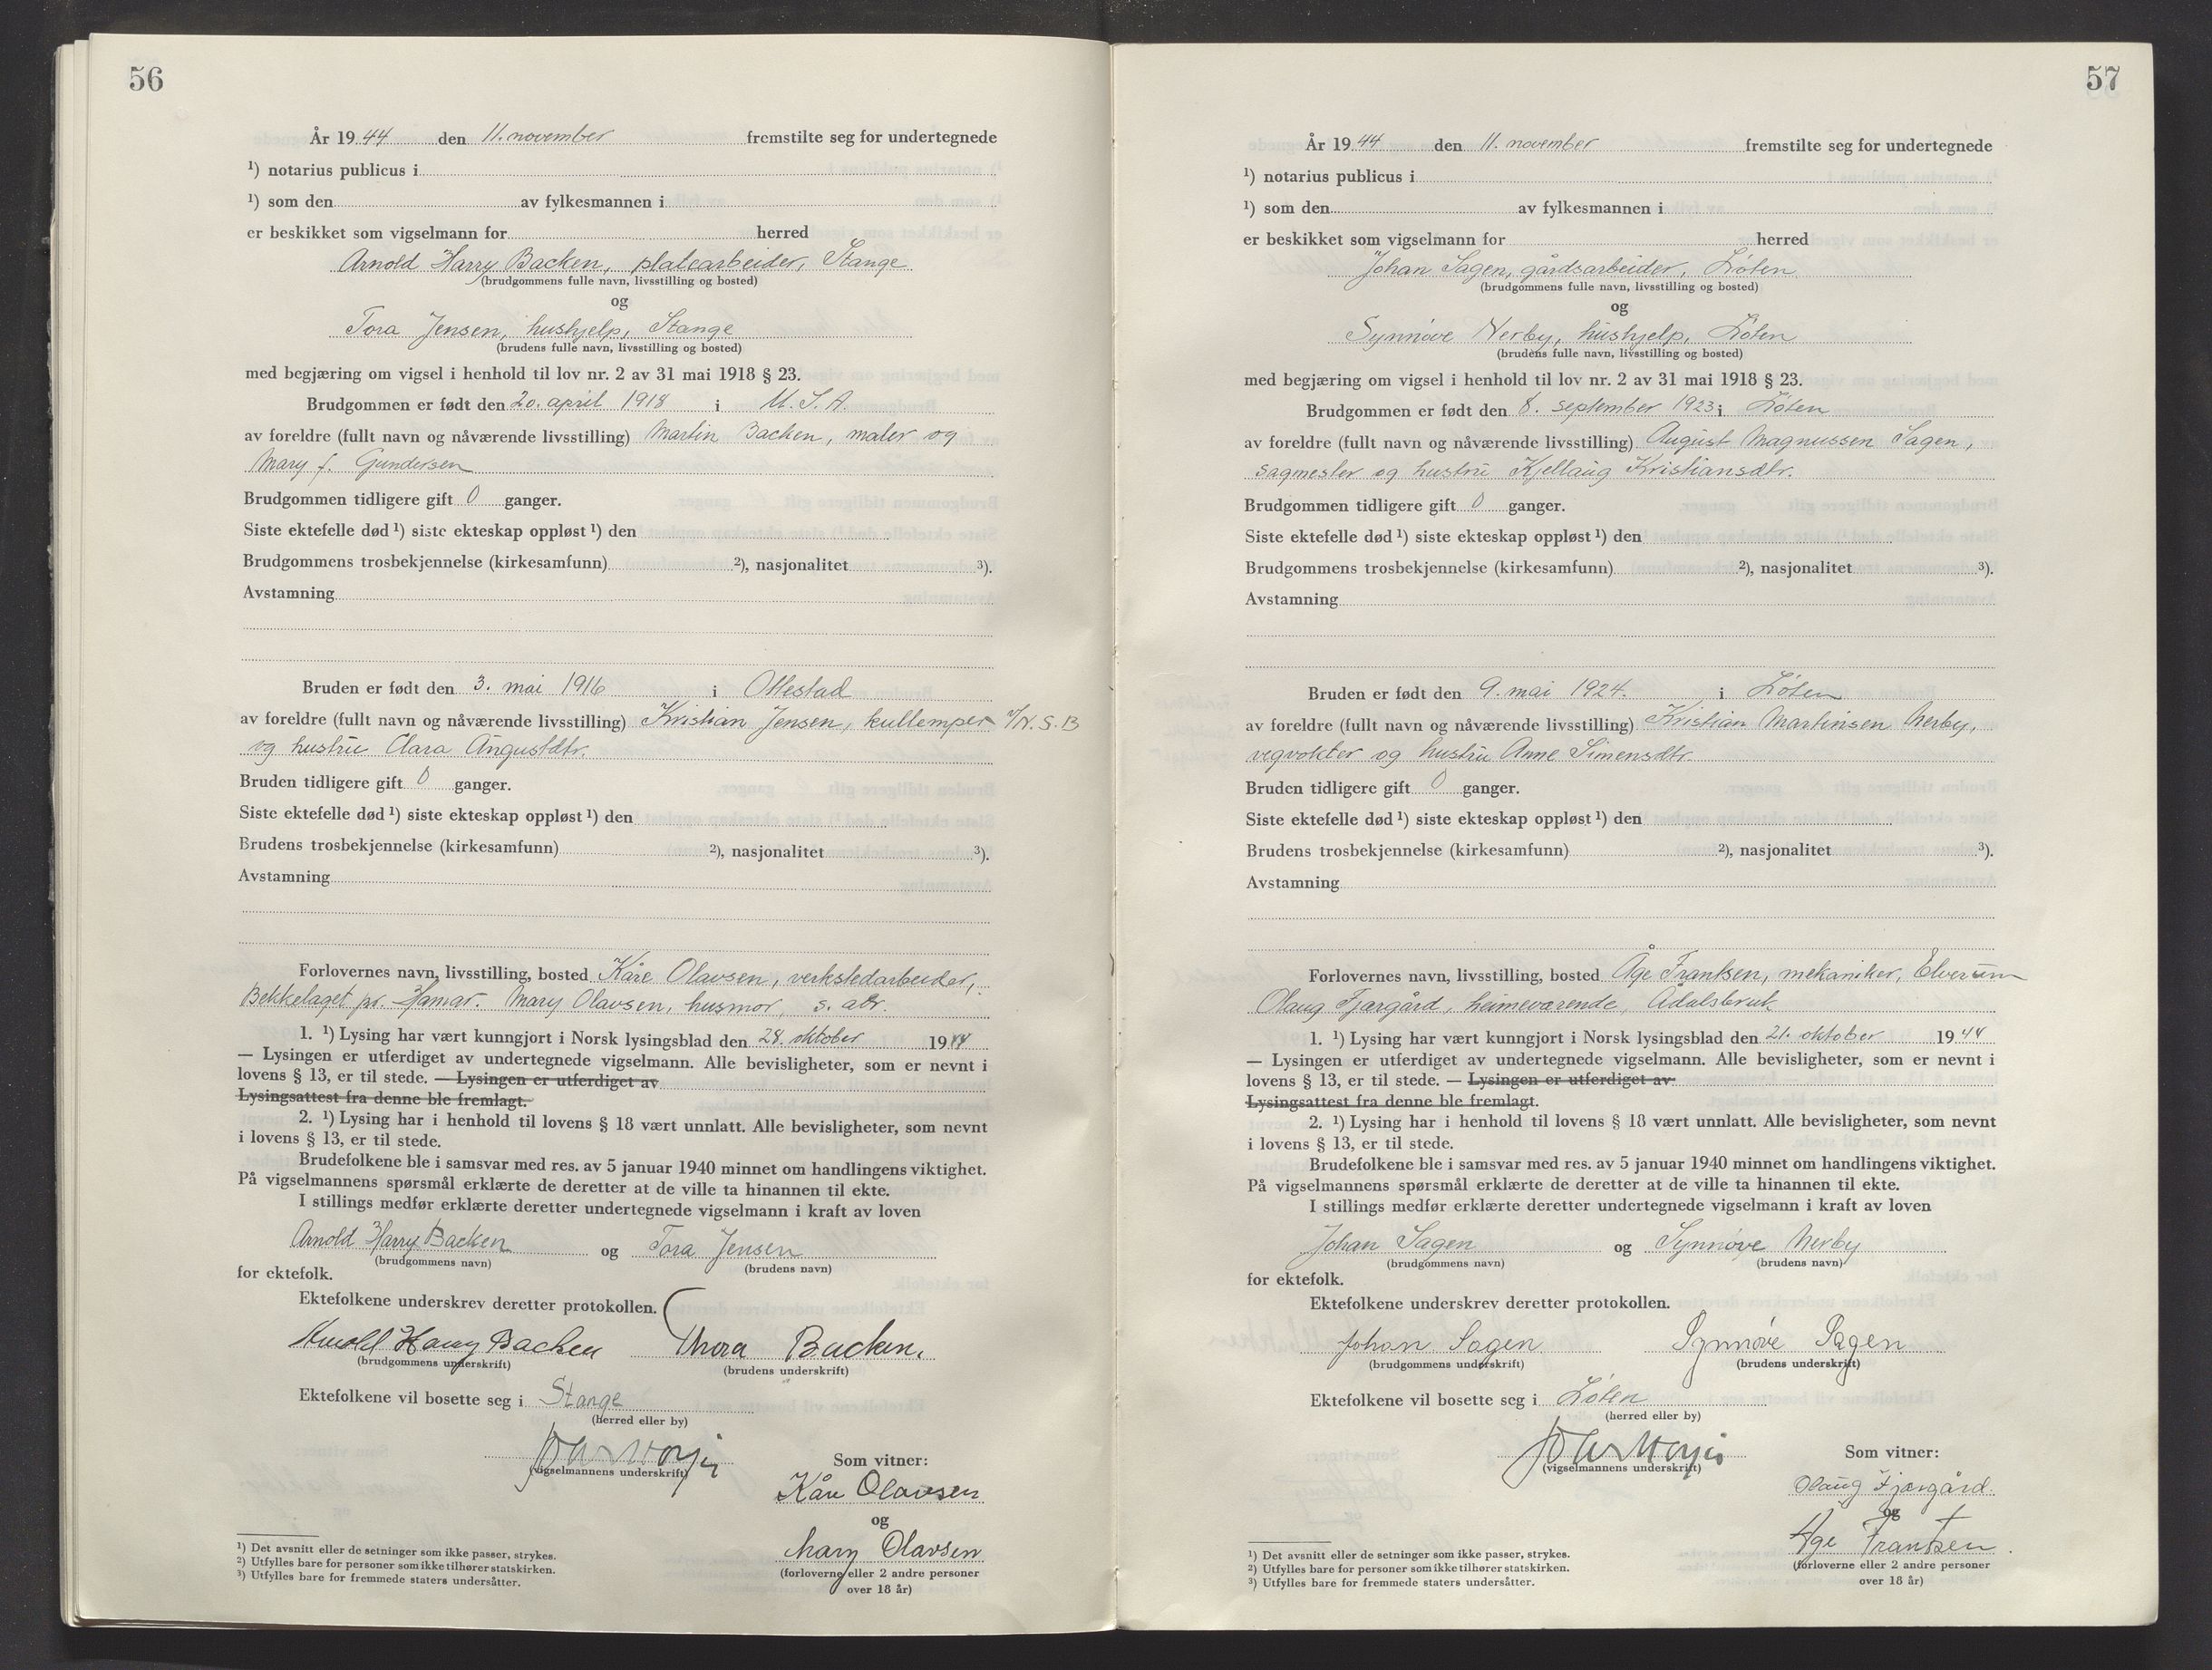 56
År 1944 den 11. november fremstilte seg for undertegnede
¹) notarius publicus i
¹) som den av fylkesmannen i
er beskikket som vigselmann for herred
Arnold Harry Backen, platearbeider, Stange
(brudgommens fulle navn, livsstilling og bosted)
og
Tora Jensen, hushjelp, Stange
(brudens fulle navn, livsstilling og bosted)
med begjæring om vigsel i henhold til lov nr. 2 av 31 mai 1918 § 23.
Brudgommen er født den 20. april 1918 i U.S.A.
av foreldre (fullt navn og nåværende livsstilling) Martin Backen, maler og
Mary f. Gundersen
Brudgommen tidligere gift 0 ganger.
Siste ektefelle død ¹) siste ekteskap oppløst ¹) den
Brudgommens trosbekjennelse (kirkesamfunn) ²), nasjonalitet ³).
Avstamning
Bruden er født den 3. mai 1916 i Ottestad
av foreldre (fullt navn og nåværende livsstilling) Kristian Jensen, kullemper v/N.S.B
og hustru Clara Augustdtr.
Bruden tidligere gift 0 ganger.
Siste ektefelle død ¹) siste ekteskap oppløst ¹) den
Brudens trosbekjennelse (kirkesamfunn) ²), nasjonalitet ³).
Avstamning
Forlovernes navn, livsstilling, bosted Kåre Olavsen, verkstedarbeider,
Bekkelaget pr. Hamar. Mary Olavsen, husmor, s. adr.
1. ¹) Lysing har vært kunngjort i Norsk lysingsblad den 28. oktober 1944
— Lysingen er utferdiget av undertegnede vigselmann. Alle bevisligheter, som er nevnt i
lovens § 13, er til stede. — Lysingen er utferdiget av
Lysingsattest fra denne ble fremlagt.
2. ¹) Lysing har i henhold til lovens § 18 vært unnlatt. Alle bevisligheter, som nevnt
i lovens § 13, er til stede.
Brudefolkene ble i samsvar med res. av 5 januar 1940 minnet om handlingens viktighet.
På vigselmannens spørsmål erklærte de deretter at de ville ta hinannen til ekte.
I stillings medfør erklærte deretter undertegnede vigselmann i kraft av loven
Arnold Harry Backen og Tora Jensen
(brudgommens navn) (brudens navn)
for ektefolk.
Ektefolkene underskrev deretter protokollen.
Arnold Harry Backen Thora Backen.
(brudgommens underskrift) (brudens underskrift)
Ektefolkene vil bosette seg i Stange
(herred eller by)
(vigselmannens underskrift)
Som vitner:
Kåre Olavsen
og
Mary Olavsen
(forloverne eller 2 andre personer
over 18 år)
¹) Det avsnitt eller de setninger som ikke passer, strykes.
²) Utfylles bare for personer som ikke tilhører statskirken.
³) Utfylles bare for fremmede staters undersåtter.
57
År 1944 den 11. november fremstilte seg for undertegnede
¹) notarius publicus i
¹) som den av fylkesmannen i
er beskikket som vigselmann for herred
Johan Sagen, gårdsarbeider, Löten
(brudgommens fulle navn, livsstilling og bosted)
og
Synnöve Nerby, hushjelp, Löten
(brudens fulle navn, livsstilling og bosted)
med begjæring om vigsel i henhold til lov nr. 2 av 31 mai 1918 § 23.
Brudgommen er født den 8. september 1923 i Löten
av foreldre (fullt navn og nåværende livsstilling) August Magnussen Sagen,
sagmester og hustru Kjellaug Kristiansdtr.
Brudgommen tidligere gift 0 ganger.
Siste ektefelle død ¹) siste ekteskap oppløst ¹) den
Brudgommens trosbekjennelse (kirkesamfunn) ²), nasjonalitet ³).
Avstamning
Bruden er født den 9. mai 1924. i Löten
av foreldre (fullt navn og nåværende livsstilling) Kristian Martinsen Nerby,
vegvokter og hustru Anne Simensdtr.
Bruden tidligere gift 0 ganger.
Siste ektefelle død ¹) siste ekteskap oppløst ¹) den
Brudens trosbekjennelse (kirkesamfunn) ²), nasjonalitet ³).
Avstamning
Forlovernes navn, livsstilling, bosted Åge Frantsen, mekaniker, Elverum
Olaug Fjærgård, heimeværende, Ådalsbruk
1. ¹) Lysing har vært kunngjort i Norsk lysingsblad den 21. oktober 1944
— Lysingen er utferdiget av undertegnede vigselmann. Alle bevisligheter, som er nevnt i
lovens § 13, er til stede. — Lysingen er utferdiget av
Lysingsattest fra denne ble fremlagt.
2. ¹) Lysing har i henhold til lovens § 18 vært unnlatt. Alle bevisligheter, som nevnt
i lovens § 13, er til stede.
Brudefolkene ble i samsvar med res. av 5 januar 1940 minnet om handlingens viktighet.
På vigselmannens spørsmål erklærte de deretter at de ville ta hinannen til ekte.
I stillings medfør erklærte deretter undertegnede vigselmann i kraft av loven
Johan Sagen og Synnöve Nerby
(brudgommens navn) (brudens navn)
for ektefolk.
Ektefolkene underskrev deretter protokollen.
Johan Sagen Synnöve Sagen
(brudgommens underskrift) (brudens underskrift)
Ektefolkene vil bosette seg i Löten
(herred eller by)
(vigselmannens underskrift)
Som vitner:
Olaug Fjærgård.
og
Åge Frantsen.
(forloverne eller 2 andre personer
over 18 år)
¹) Det avsnitt eller de setninger som ikke passer, strykes.
²) Utfylles bare for personer som ikke tilhører statskirken.
³) Utfylles bare for fremmede staters undersåtter.